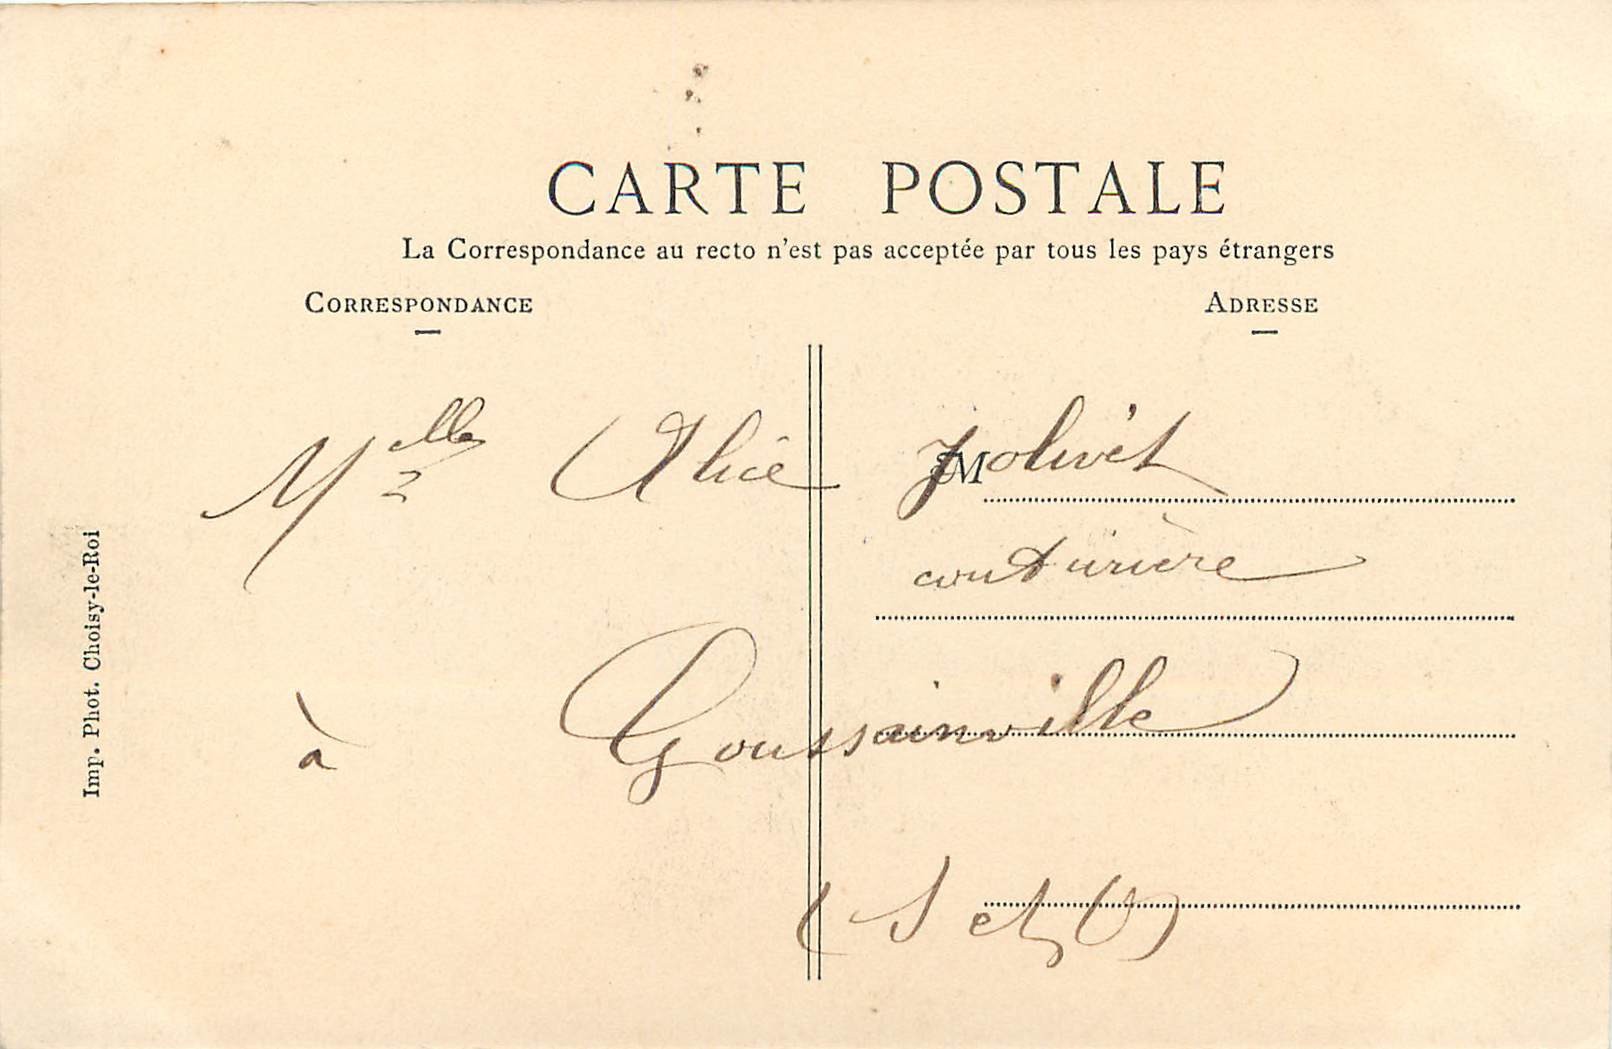 CARTE POSTALE
La Correspondance au recto n'est pas acceptée par tous les pays étrangers
CORRESPONDANCE
ADRESSE
Melle Alice Jolivet
M
couturière
à Goussainville
(S et O)
Imp. Phot. Choisy-le-Roi